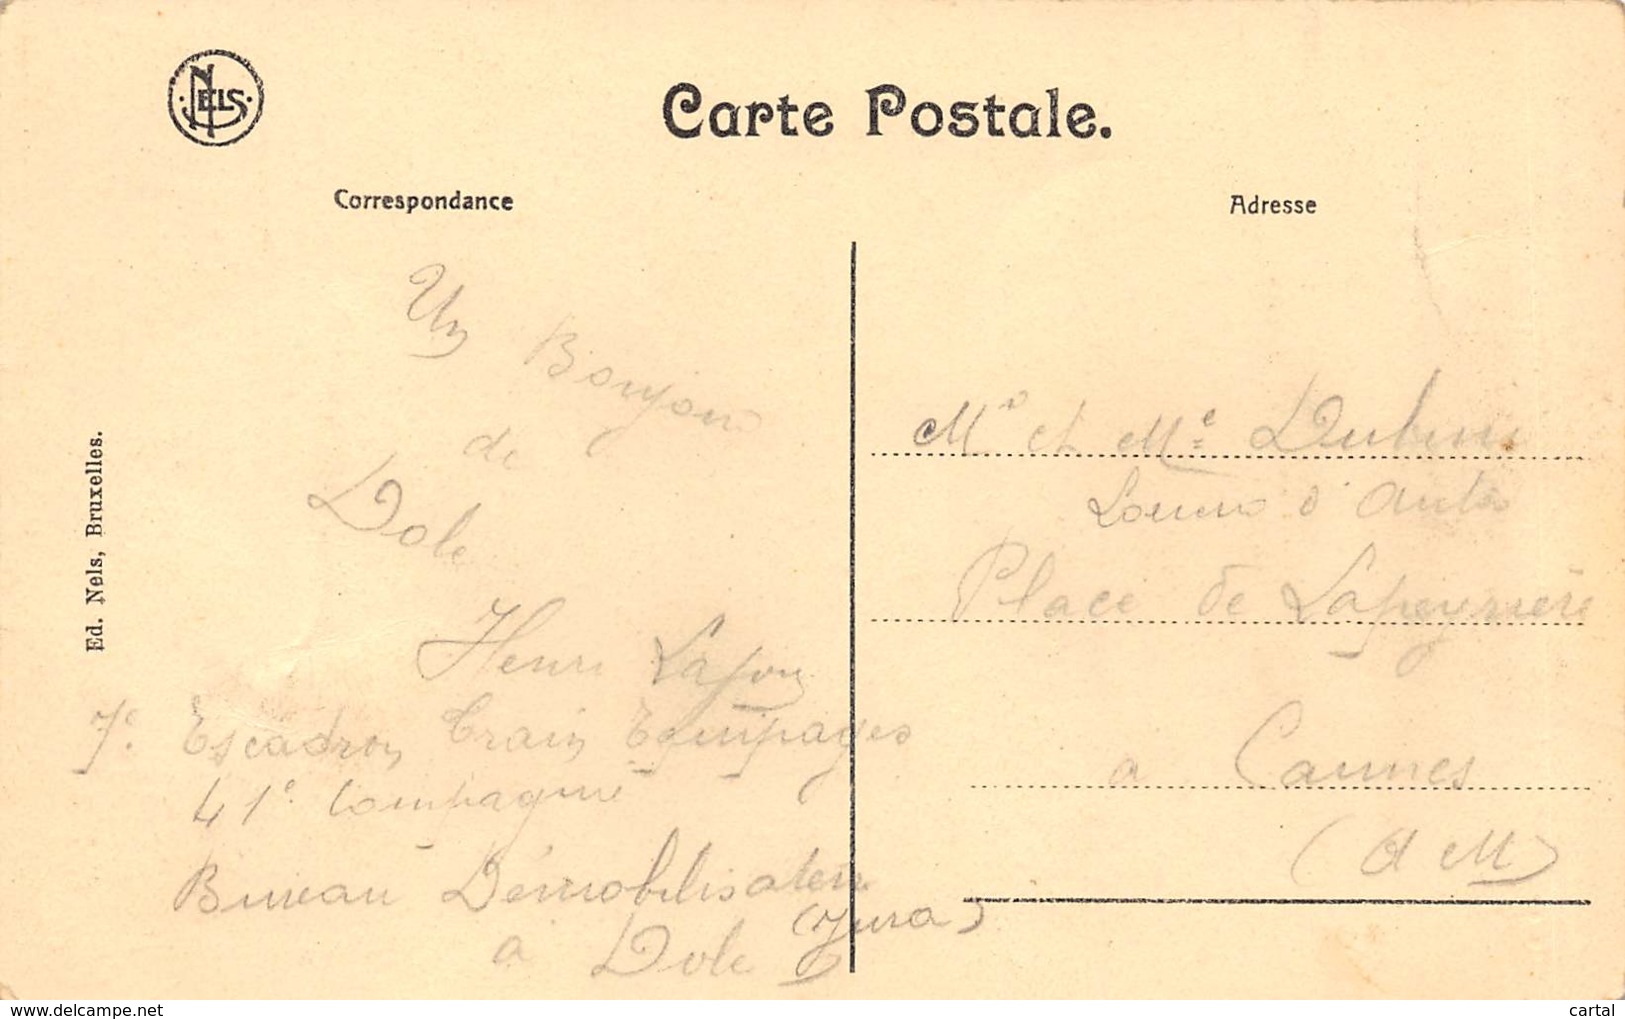 NELS
Carte Postale.
Correspondance
Adresse
Ed. Nels, Bruxelles.
Un Bonjour
de
Dole
Henri Lafon
7e Escadron Train Equipages
41e Compagnie
Bureau Démobilisation
a Dole (Jura)
Mr et Me
d'
Place de Lapeyrière
a Cannes
(A M)
www.delcampe.net
cartal